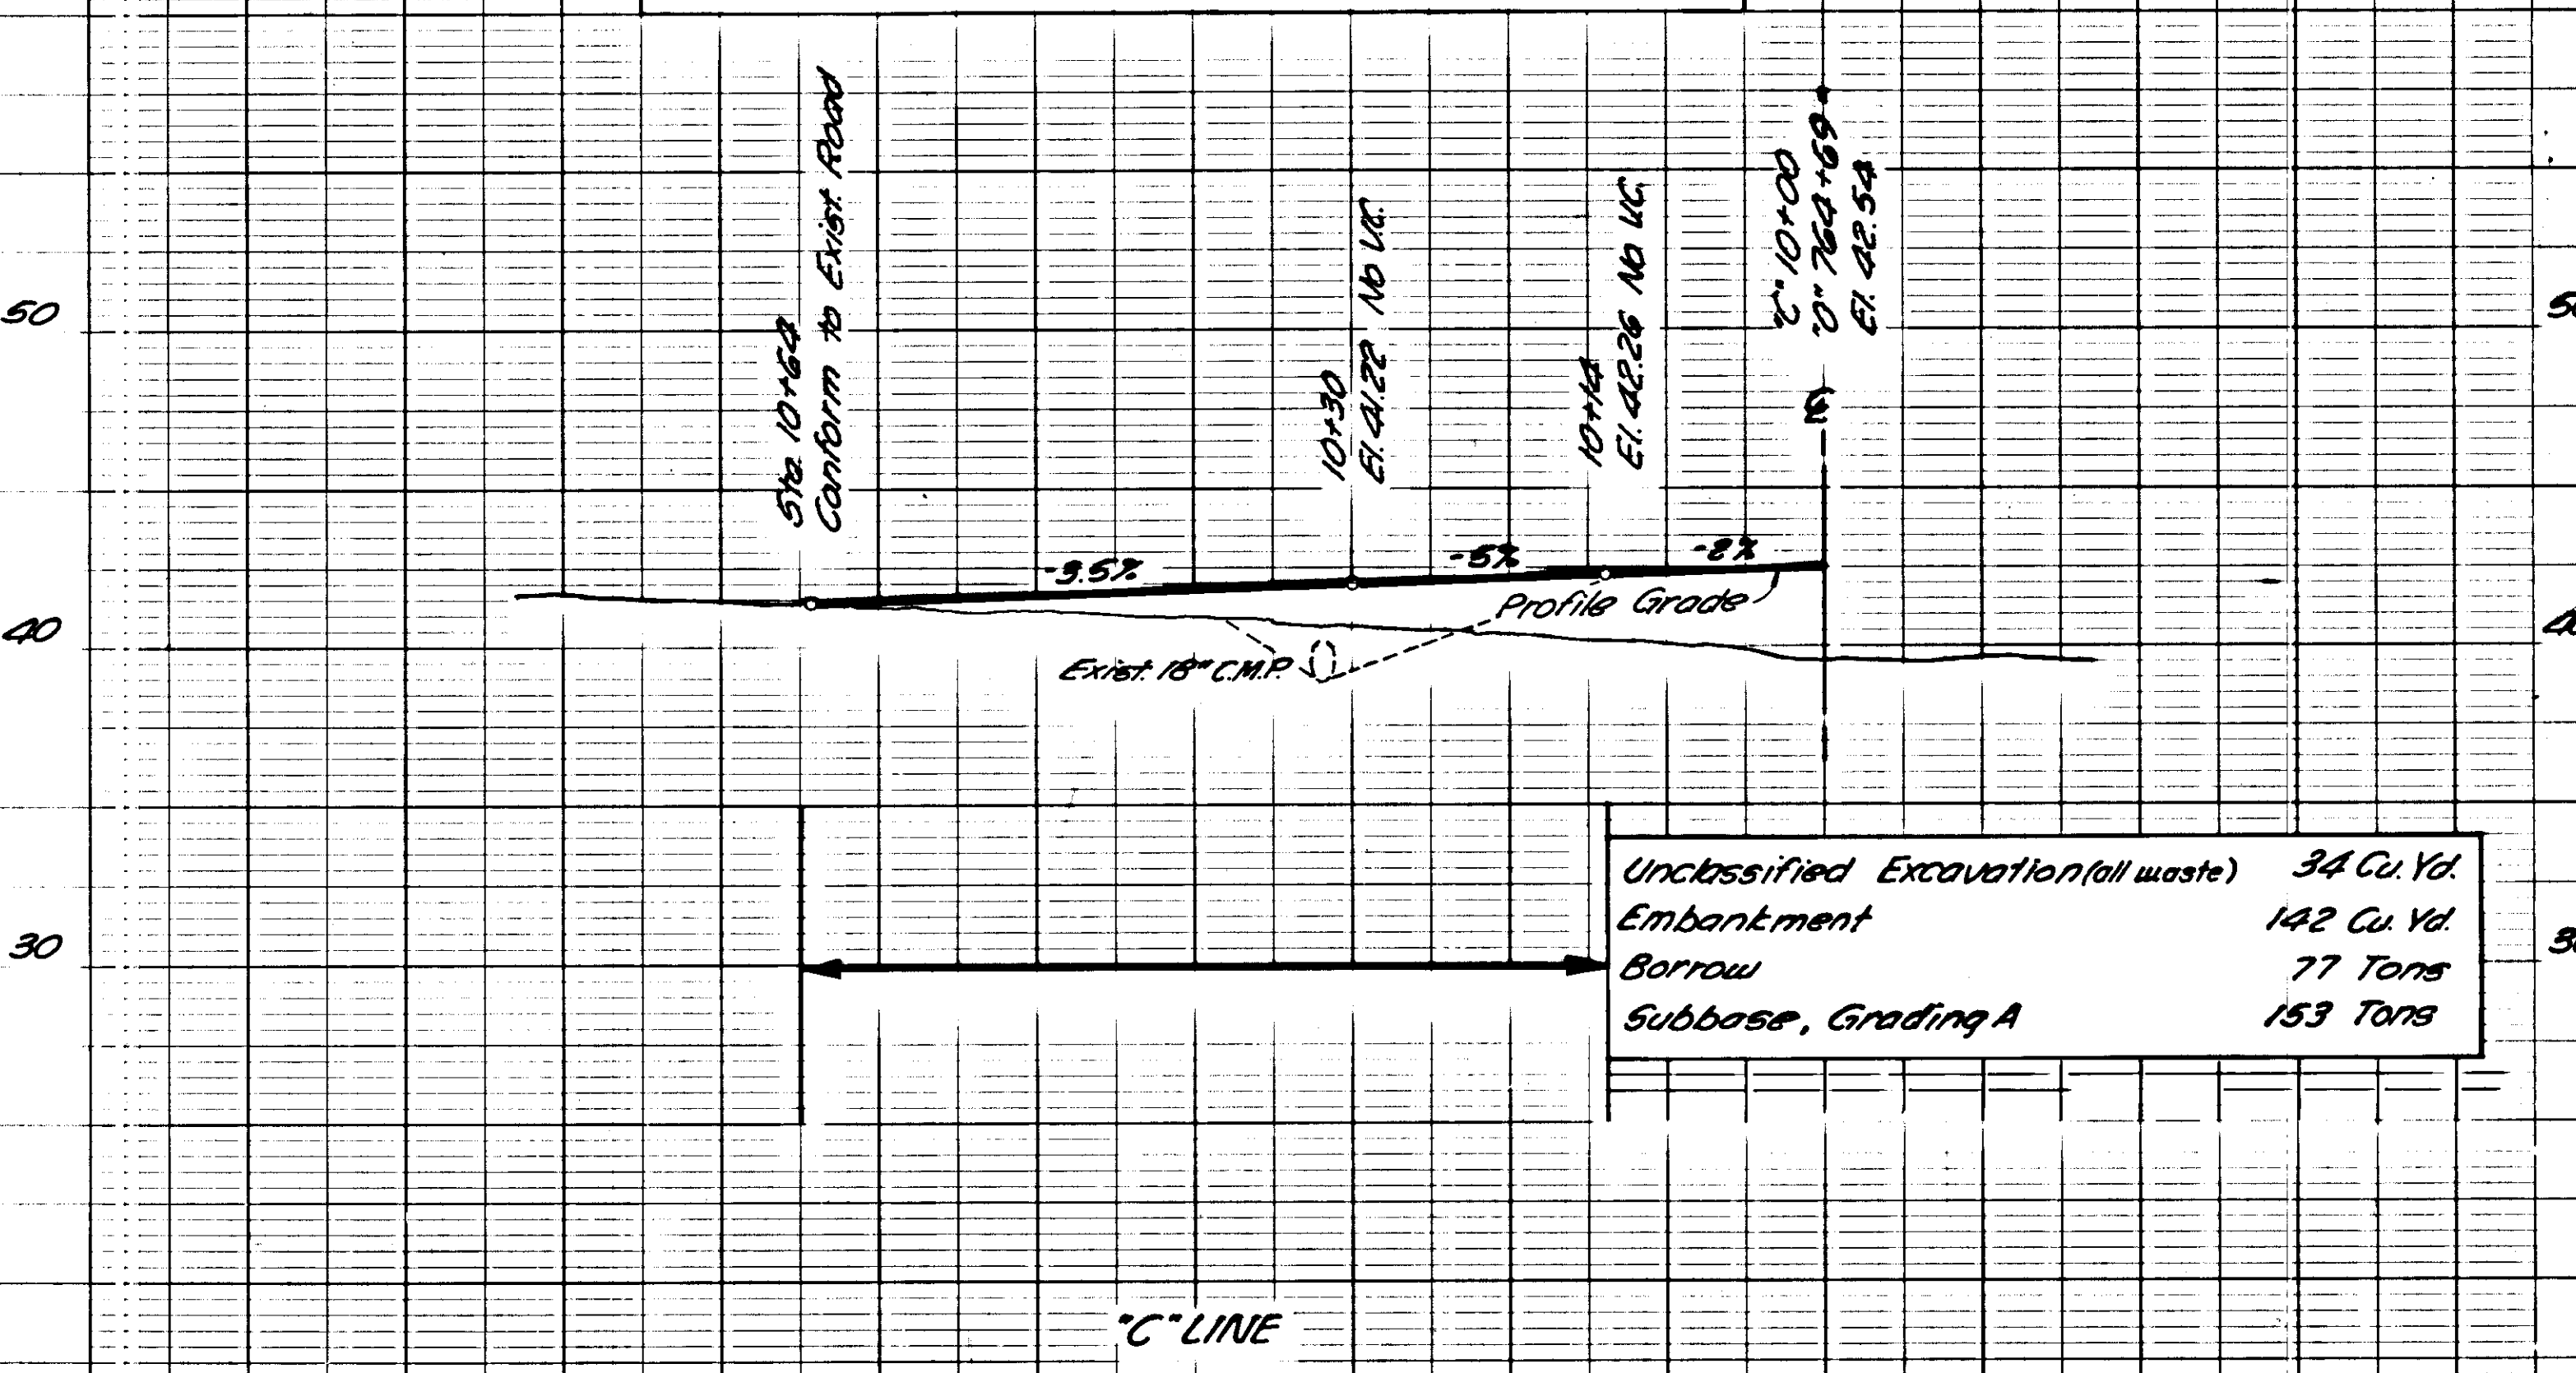 Sta. 10+64
Conform to Exist. Road
10+30
El. 41.22 No V.C.
10+14
El. 42.26 No V.C.
"C" 10+00
"O" 764+69
El. 42.54
50
50
-3.5%
-5%
-2%
Profile Grade
40
40
Exist. 18" C.M.P.
Unclassified Excavation (all waste) 34 Cu. Yd.
Embankment 142 Cu. Yd.
30
30
Borrow 77 Tons
Subbase, Grading A 153 Tons
"C" LINE